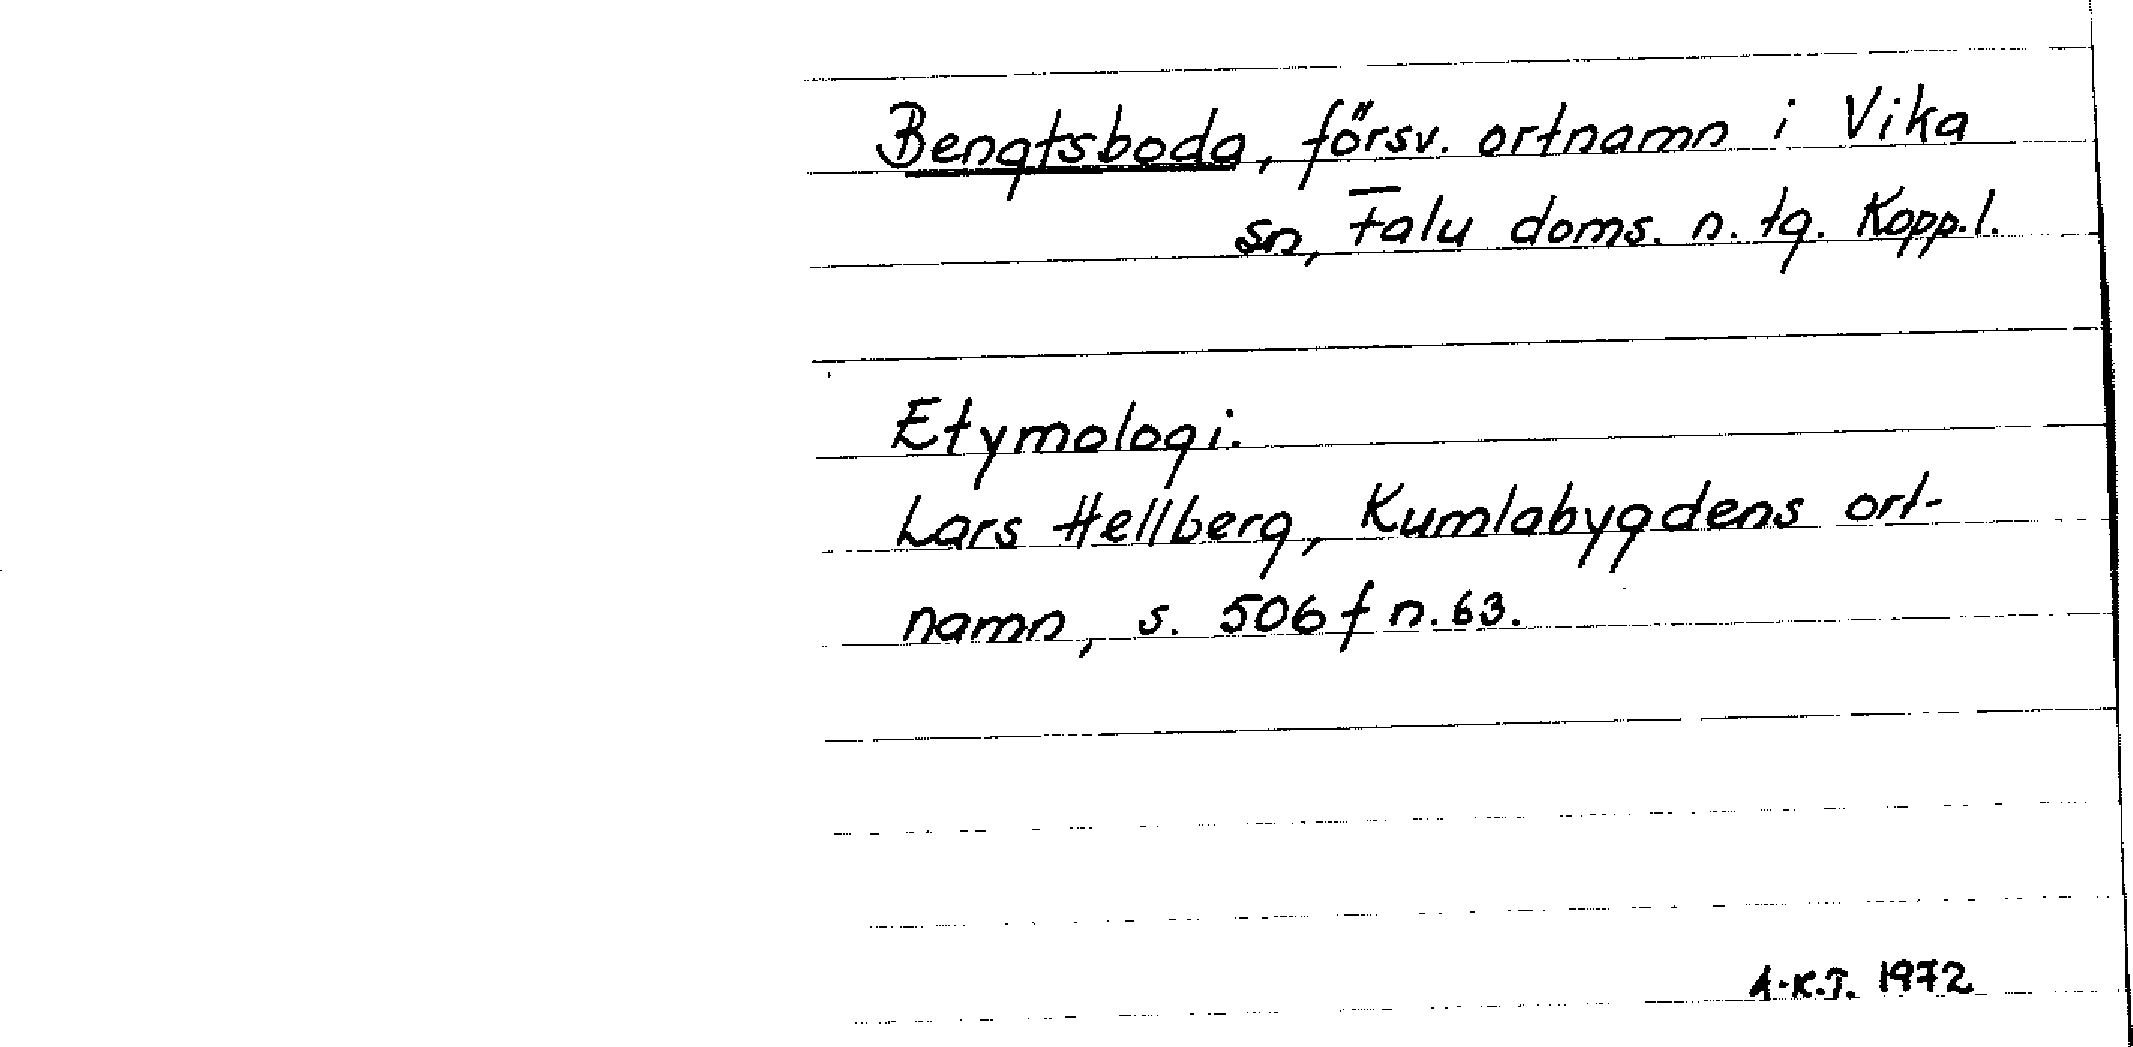 Bengtsboda, försv. ortnamn i Vika
sn, Falu doms. n. tg. Kopp.l.
Etymologi.
Lars Hellberg, Kumlabygdens ort-
namn, s. 506 f n. 63.
A-K.J. 1972